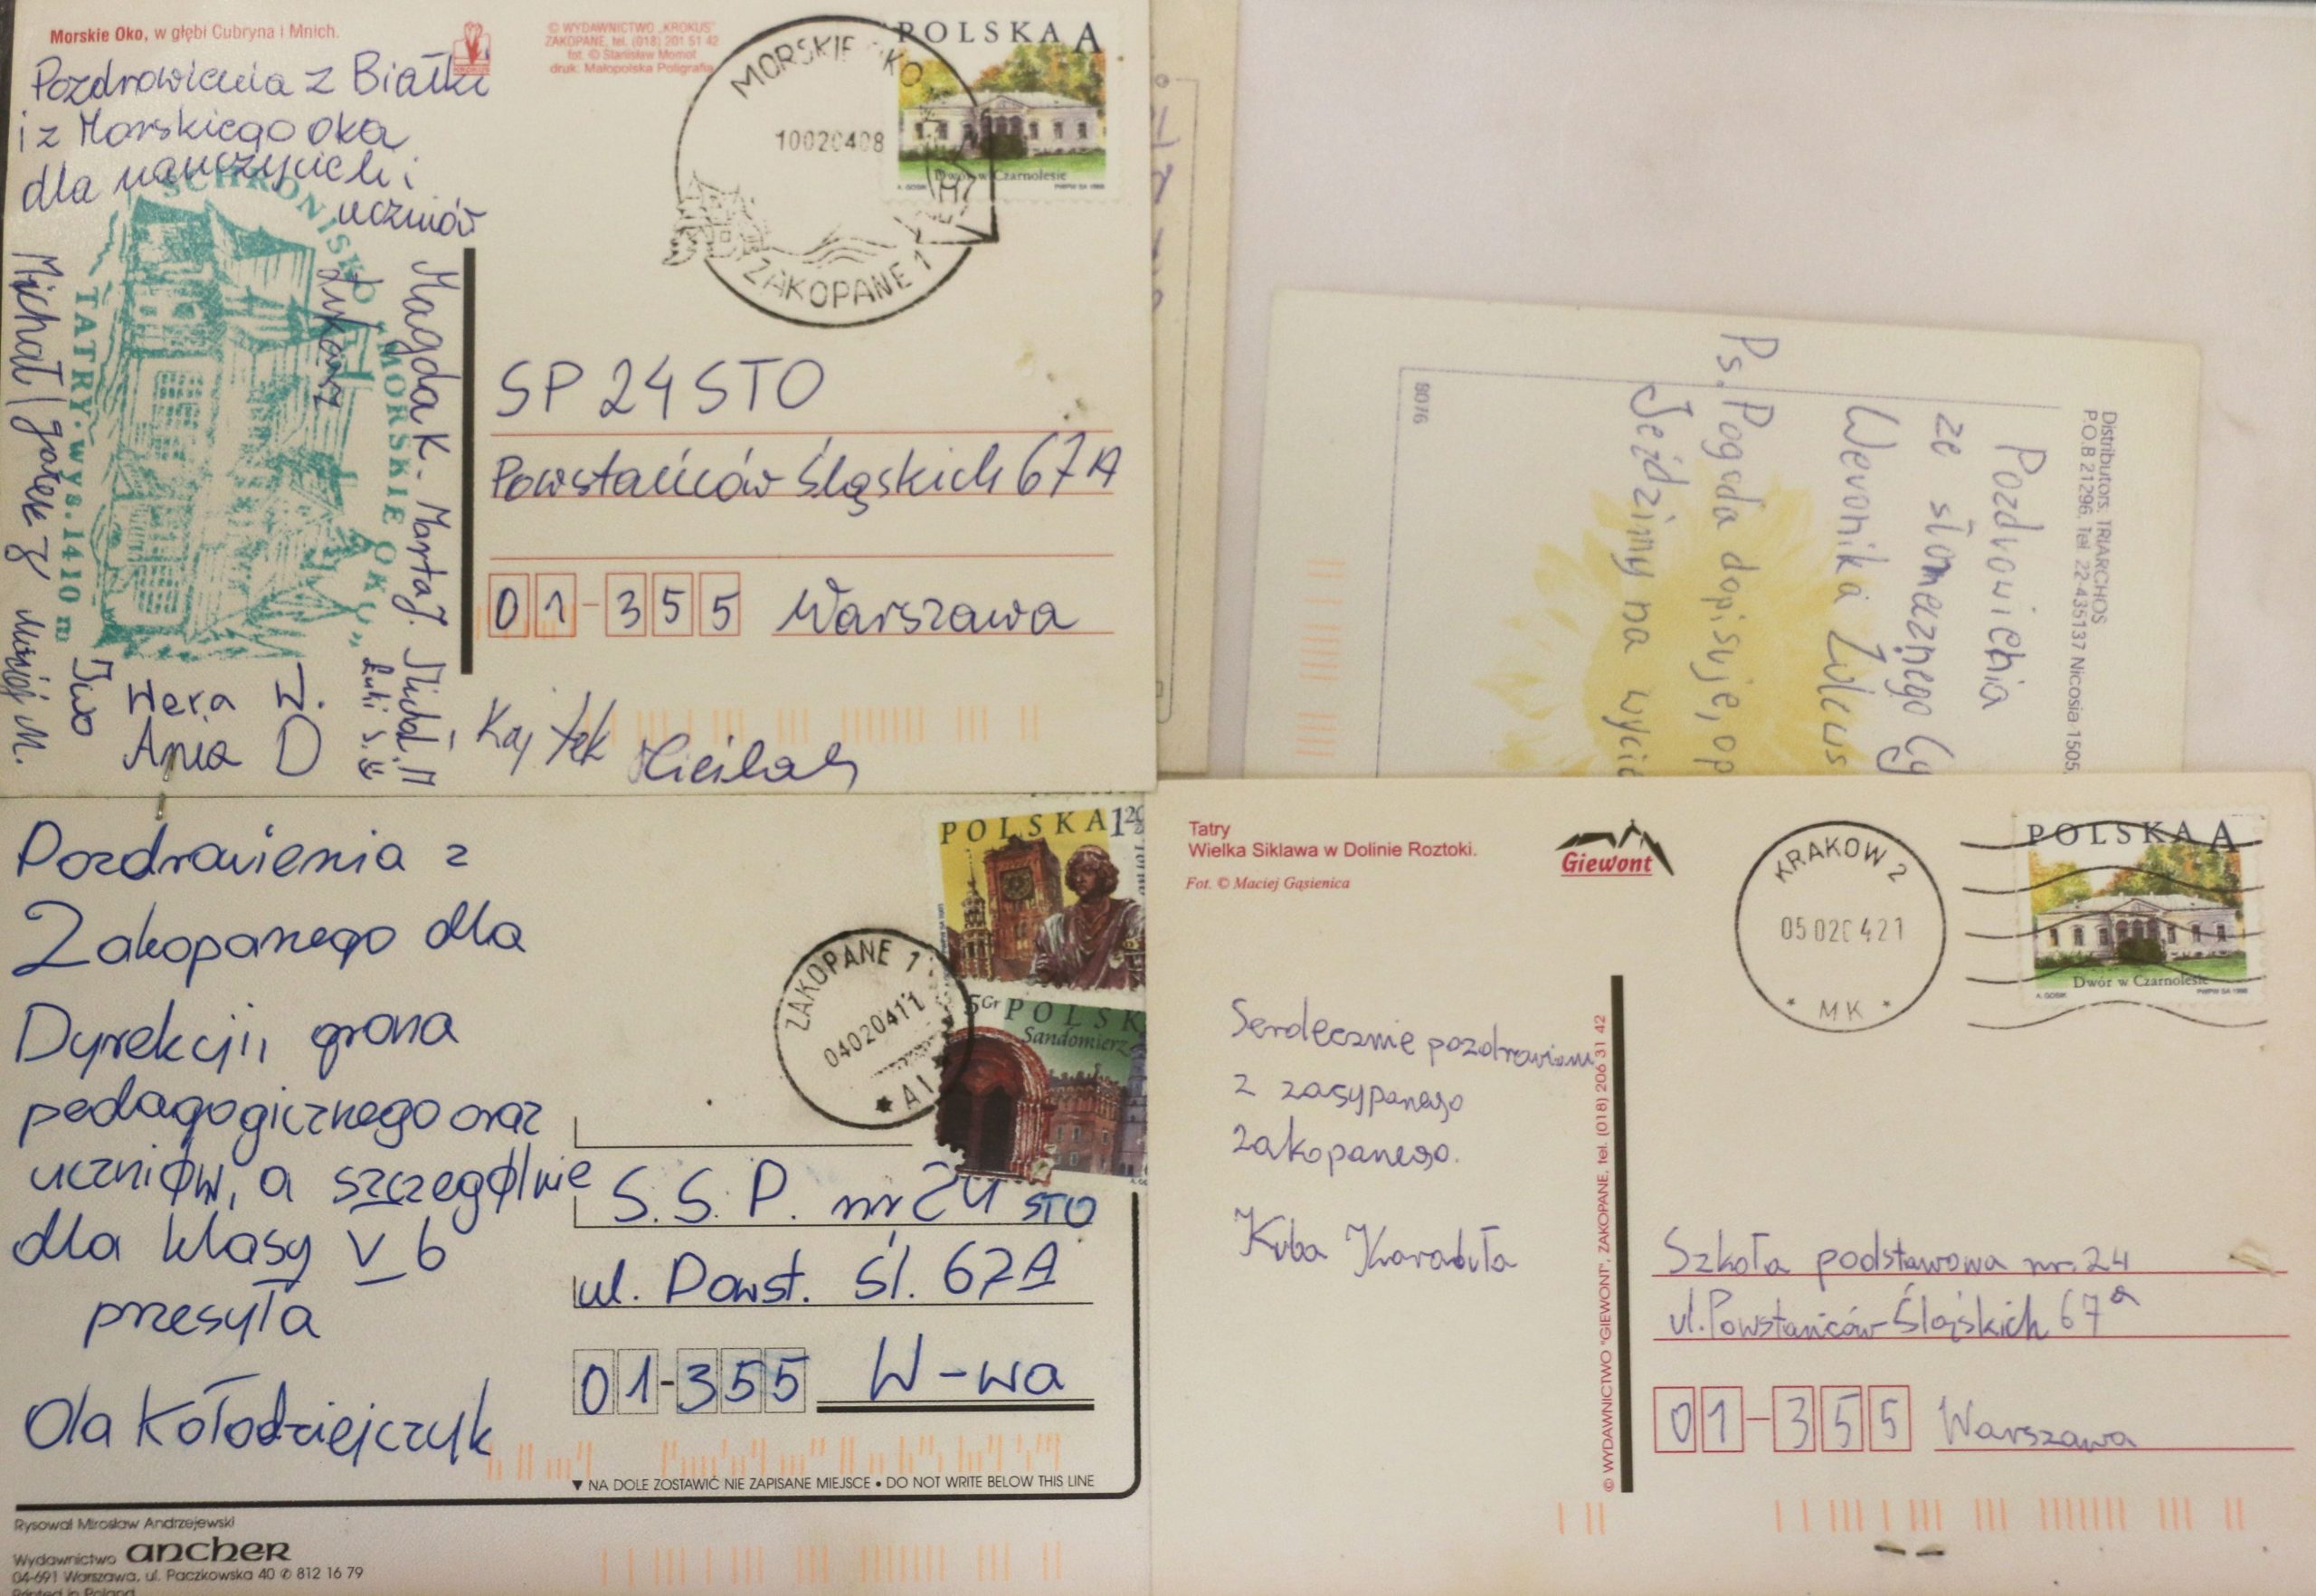 Morskie Oko, w głębi Cubryna i Mnich.
© WYDAWNICTWO „KROKUS"
ZAKOPANE, tel. (018) 201 51 42
fot. © Stanisław Momot
druk: Małopolska Poligrafia
Pozdrowienia z Białki
i z Morskiego oka
dla nauczycieli i
uczniów
SCHRONISKO „MORSKIE OKO"
TATRY. wys. 1410 m
Michał
Magda K - Marta J.
Łukasz
Iwo
Wera W.
Ania D
Michał M
Kajtek
MORSKIE OKO
10020408
ZAKOPANE 1
POLSKA A
Dwór w Czarnolesie
SP 24 STO
Powstańców Śląskich 67A
01-355 Warszawa
Distributors: TRIARCHOS
P.O.B 21296, Tel. 22-435137 Nicosia 1505,
Pozdrowienia
ze słonecznego Cy
Weronika
Ps. Pogoda dopisuje, op
Jeździmy na wycie
8076
Pozdrowienia z
Zakopanego dla
Dyrekcji, grona
pedagogicznego oraz
uczniów, a szczególnie
dla klasy V b
przesyła
Ola Kołodziejczyk
ZAKOPANE 1
04020411
A1
POLSKA 1 20
5 Gr POLSK
Sandomierz
S.S.P. nr 24 STO
ul. Powst. Śl. 67A
01-355 W-wa
▼ NA DOLE ZOSTAWIĆ NIE ZAPISANE MIEJSCE • DO NOT WRITE BELOW THIS LINE
Rysował Mirosław Andrzejewski
Wydawnictwo ancher
04-691 Warszawa, ul. Paczkowska 40 ✆ 812 16 79
Printed in Poland
Tatry
Wielka Siklawa w Dolinie Roztoki.
Fot. © Maciej Gąsienica
Giewont
KRAKOW 2
05020421
* MK *
POLSKA A
Dwór w Czarnolesie
Serdecznie pozdrowienia
z zasypanego
Zakopanego.
Kuba Karabuła
© WYDAWNICTWO "GIEWONT", ZAKOPANE, tel. (018) 206 31 42
Szkoła podstawowa nr. 24
ul. Powstańców Śląskich 67a
01-355 Warszawa